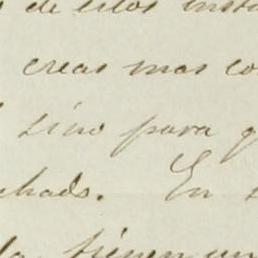 de estos inst
creas mas co
sino para q
chado. En
tienen un